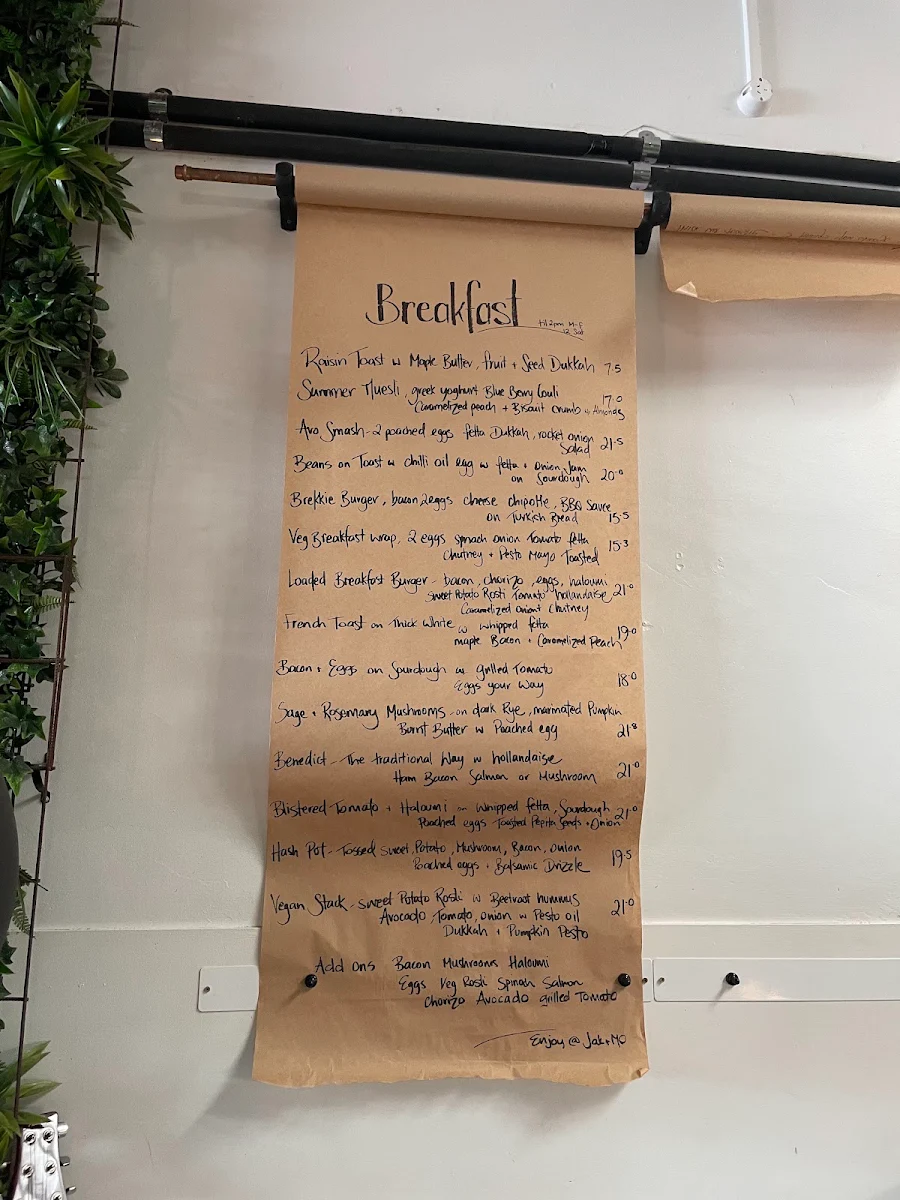 Breakfast
til 2pm M-F
12 Sat
Raisin Toast w Maple Butter, fruit + Seed Dukkah 7.5
Summer Muesli, greek yoghurt Blue Berry Couli
Caramelized peach + Biscuit crumb w Almonds 17.0
Avo Smash - 2 poached eggs fetta Dukkah, rocket onion
Salad 21.5
Beans on Toast w chilli oil egg w fetta + onion Jam
on Sourdough 20.0
Brekkie Burger, bacon 2 eggs cheese chipotle, BBQ Sauce
on Turkish Bread 15.5
Veg Breakfast wrap, 2 eggs spinach onion Tomato fetta
Chutney + Pesto Mayo Toasted 15.3
Loaded Breakfast Burger - bacon, chorizo, eggs, haloumi
sweet Potato Rosti Tomato hollandaise 21.0
Caramelized onion chutney
French Toast on Thick White w whipped fetta
maple Bacon + Caramelized Peach 19.0
Bacon + Eggs on Sourdough w grilled Tomato
Eggs your Way 18.0
Sage + Rosemary Mushrooms - on dark Rye, marinated Pumpkin
Burnt Butter w Poached egg 21.8
Benedict - The traditional Way w hollandaise
Ham Bacon Salmon or Mushroom 21.0
Blistered Tomato + Haloumi on Whipped fetta, Sourdough
Poached eggs Toasted Pepita Seeds + Onion 21.0
Hash Pot - Tossed sweet Potato, Mushroom, Bacon, onion
Poached eggs + Balsamic Drizzle 19.5
Vegan Stack - sweet Potato Rosti w Beetroot hummus
Avocado, Tomato, onion w Pesto oil 21.0
Dukkah + Pumpkin Pesto
Add ons Bacon Mushrooms Haloumi
Eggs Veg Rosti Spinach Salmon
Chorizo Avocado grilled Tomato
Enjoy @ Jak + MO